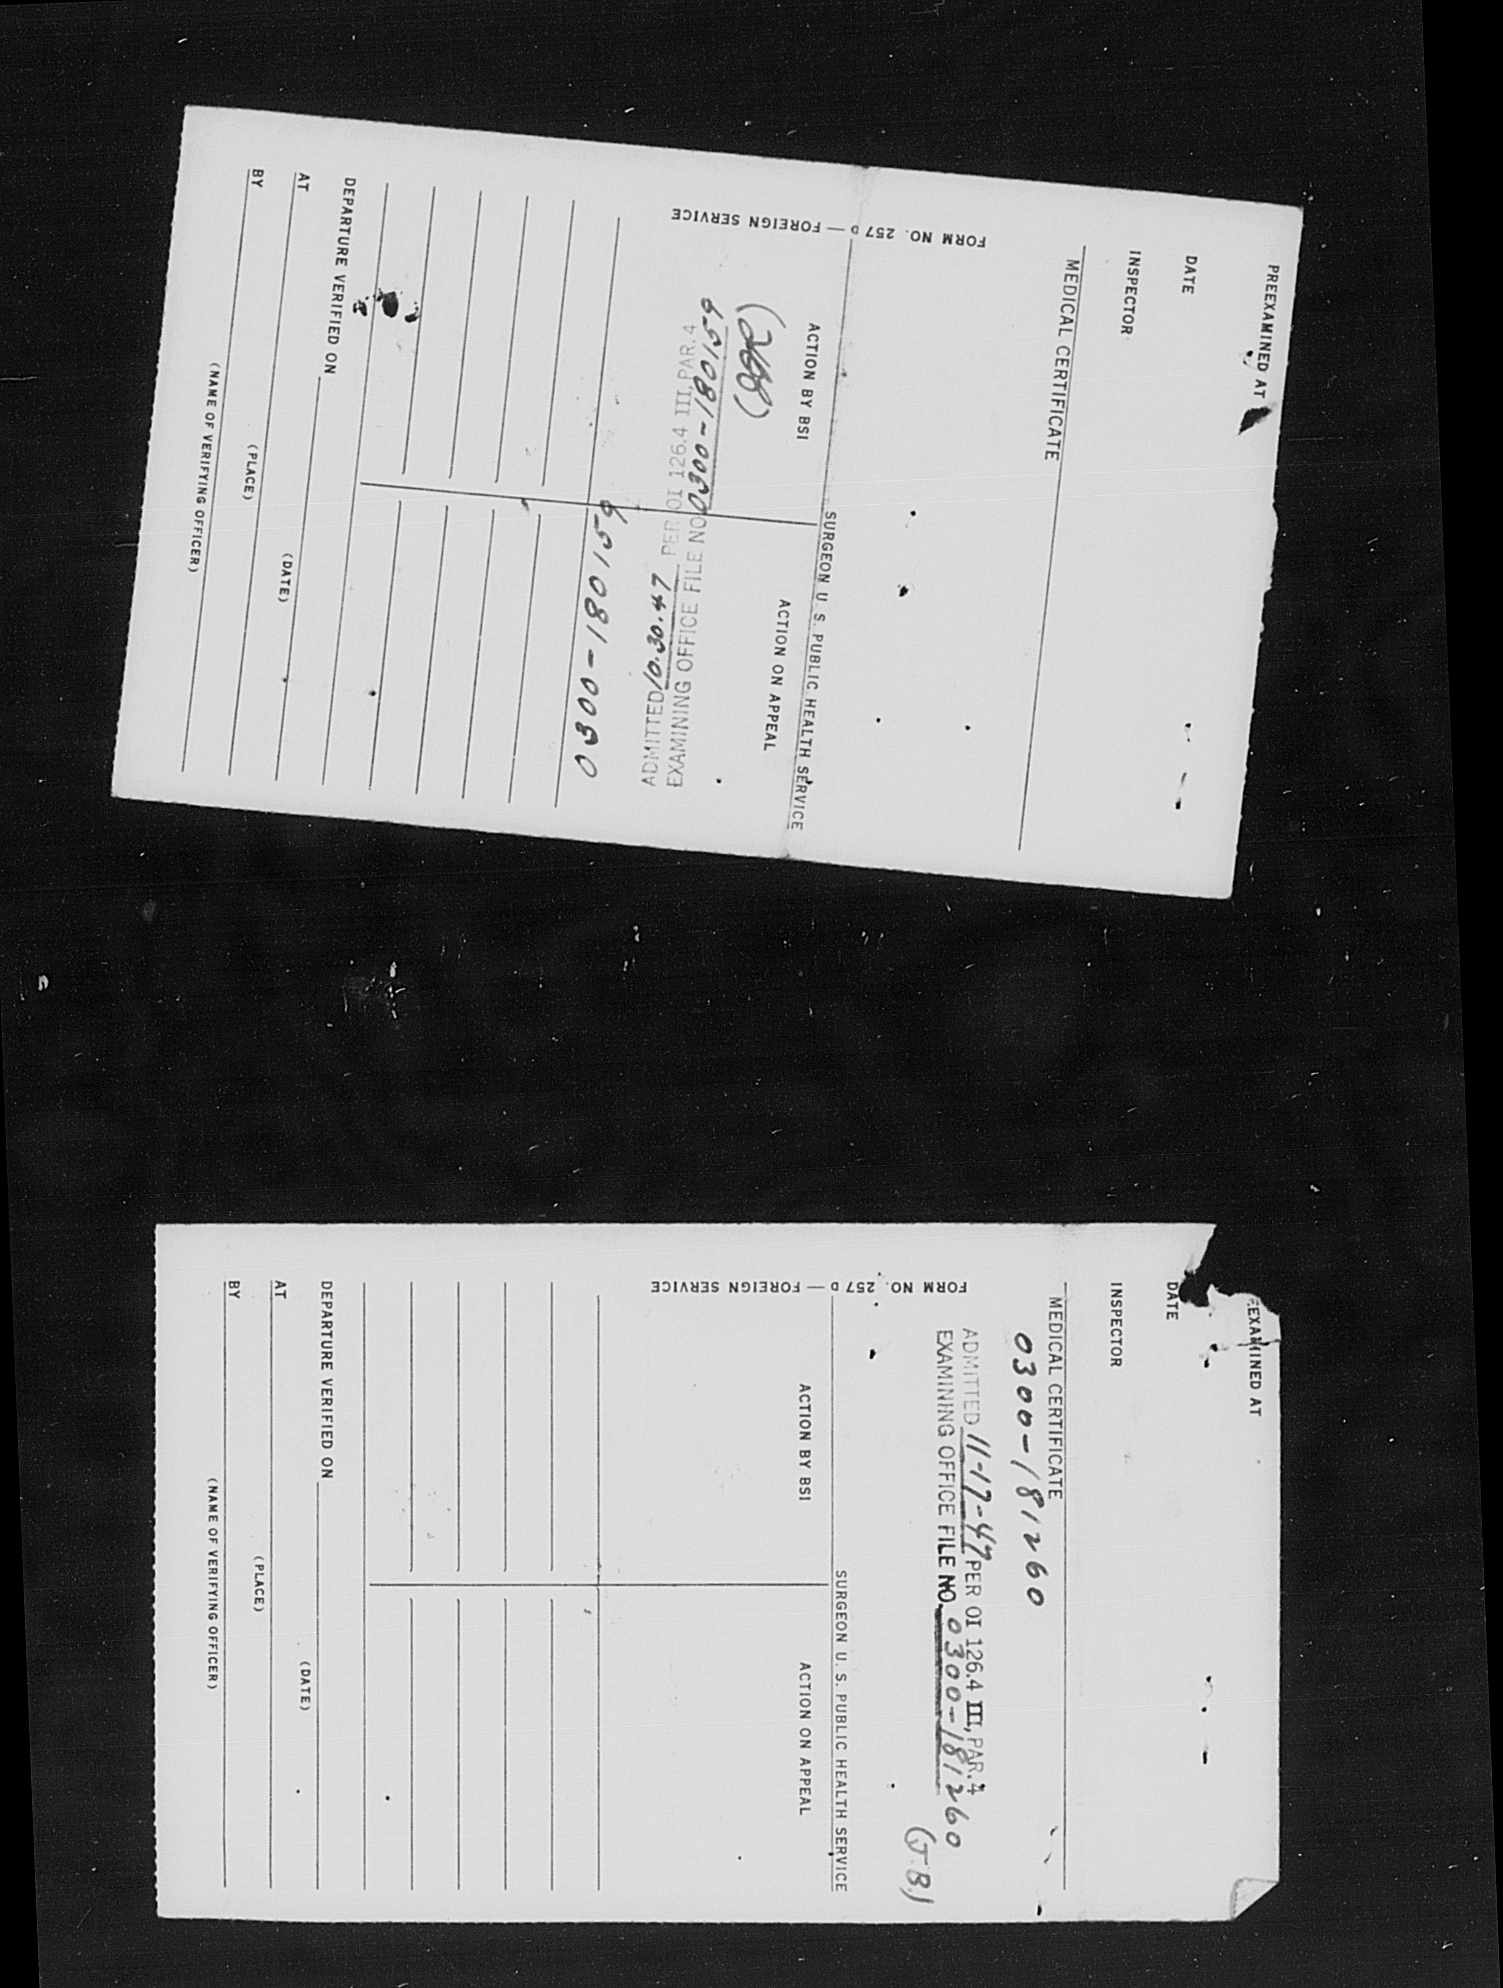 PREEXAMINED AT
DATE
INSPECTOR
MEDICAL CERTIFICATE
SURGEON U. S. PUBLIC HEALTH SERVICE
ACTION BY BSI
ACTION ON APPEAL
FORM NO. 257 D — FOREIGN SERVICE
ADMITTED 10.30.47 PER OI 126.4 III PAR.4
EXAMINING OFFICE FILE NO 0300-180159
0300-180159
DEPARTURE VERIFIED ON
(DATE)
AT
(PLACE)
BY
(NAME OF VERIFYING OFFICER)
EEXAMINED AT
DATE
INSPECTOR
MEDICAL CERTIFICATE
0300-181260
ADMITTED 11-17-47 PER OI 126.4 III, PAR.4
EXAMINING OFFICE FILE NO. 0300-181260
(J.B.)
SURGEON U. S. PUBLIC HEALTH SERVICE
ACTION BY BSI
ACTION ON APPEAL
FORM NO. 257 D — FOREIGN SERVICE
DEPARTURE VERIFIED ON
(DATE)
AT
(PLACE)
BY
(NAME OF VERIFYING OFFICER)